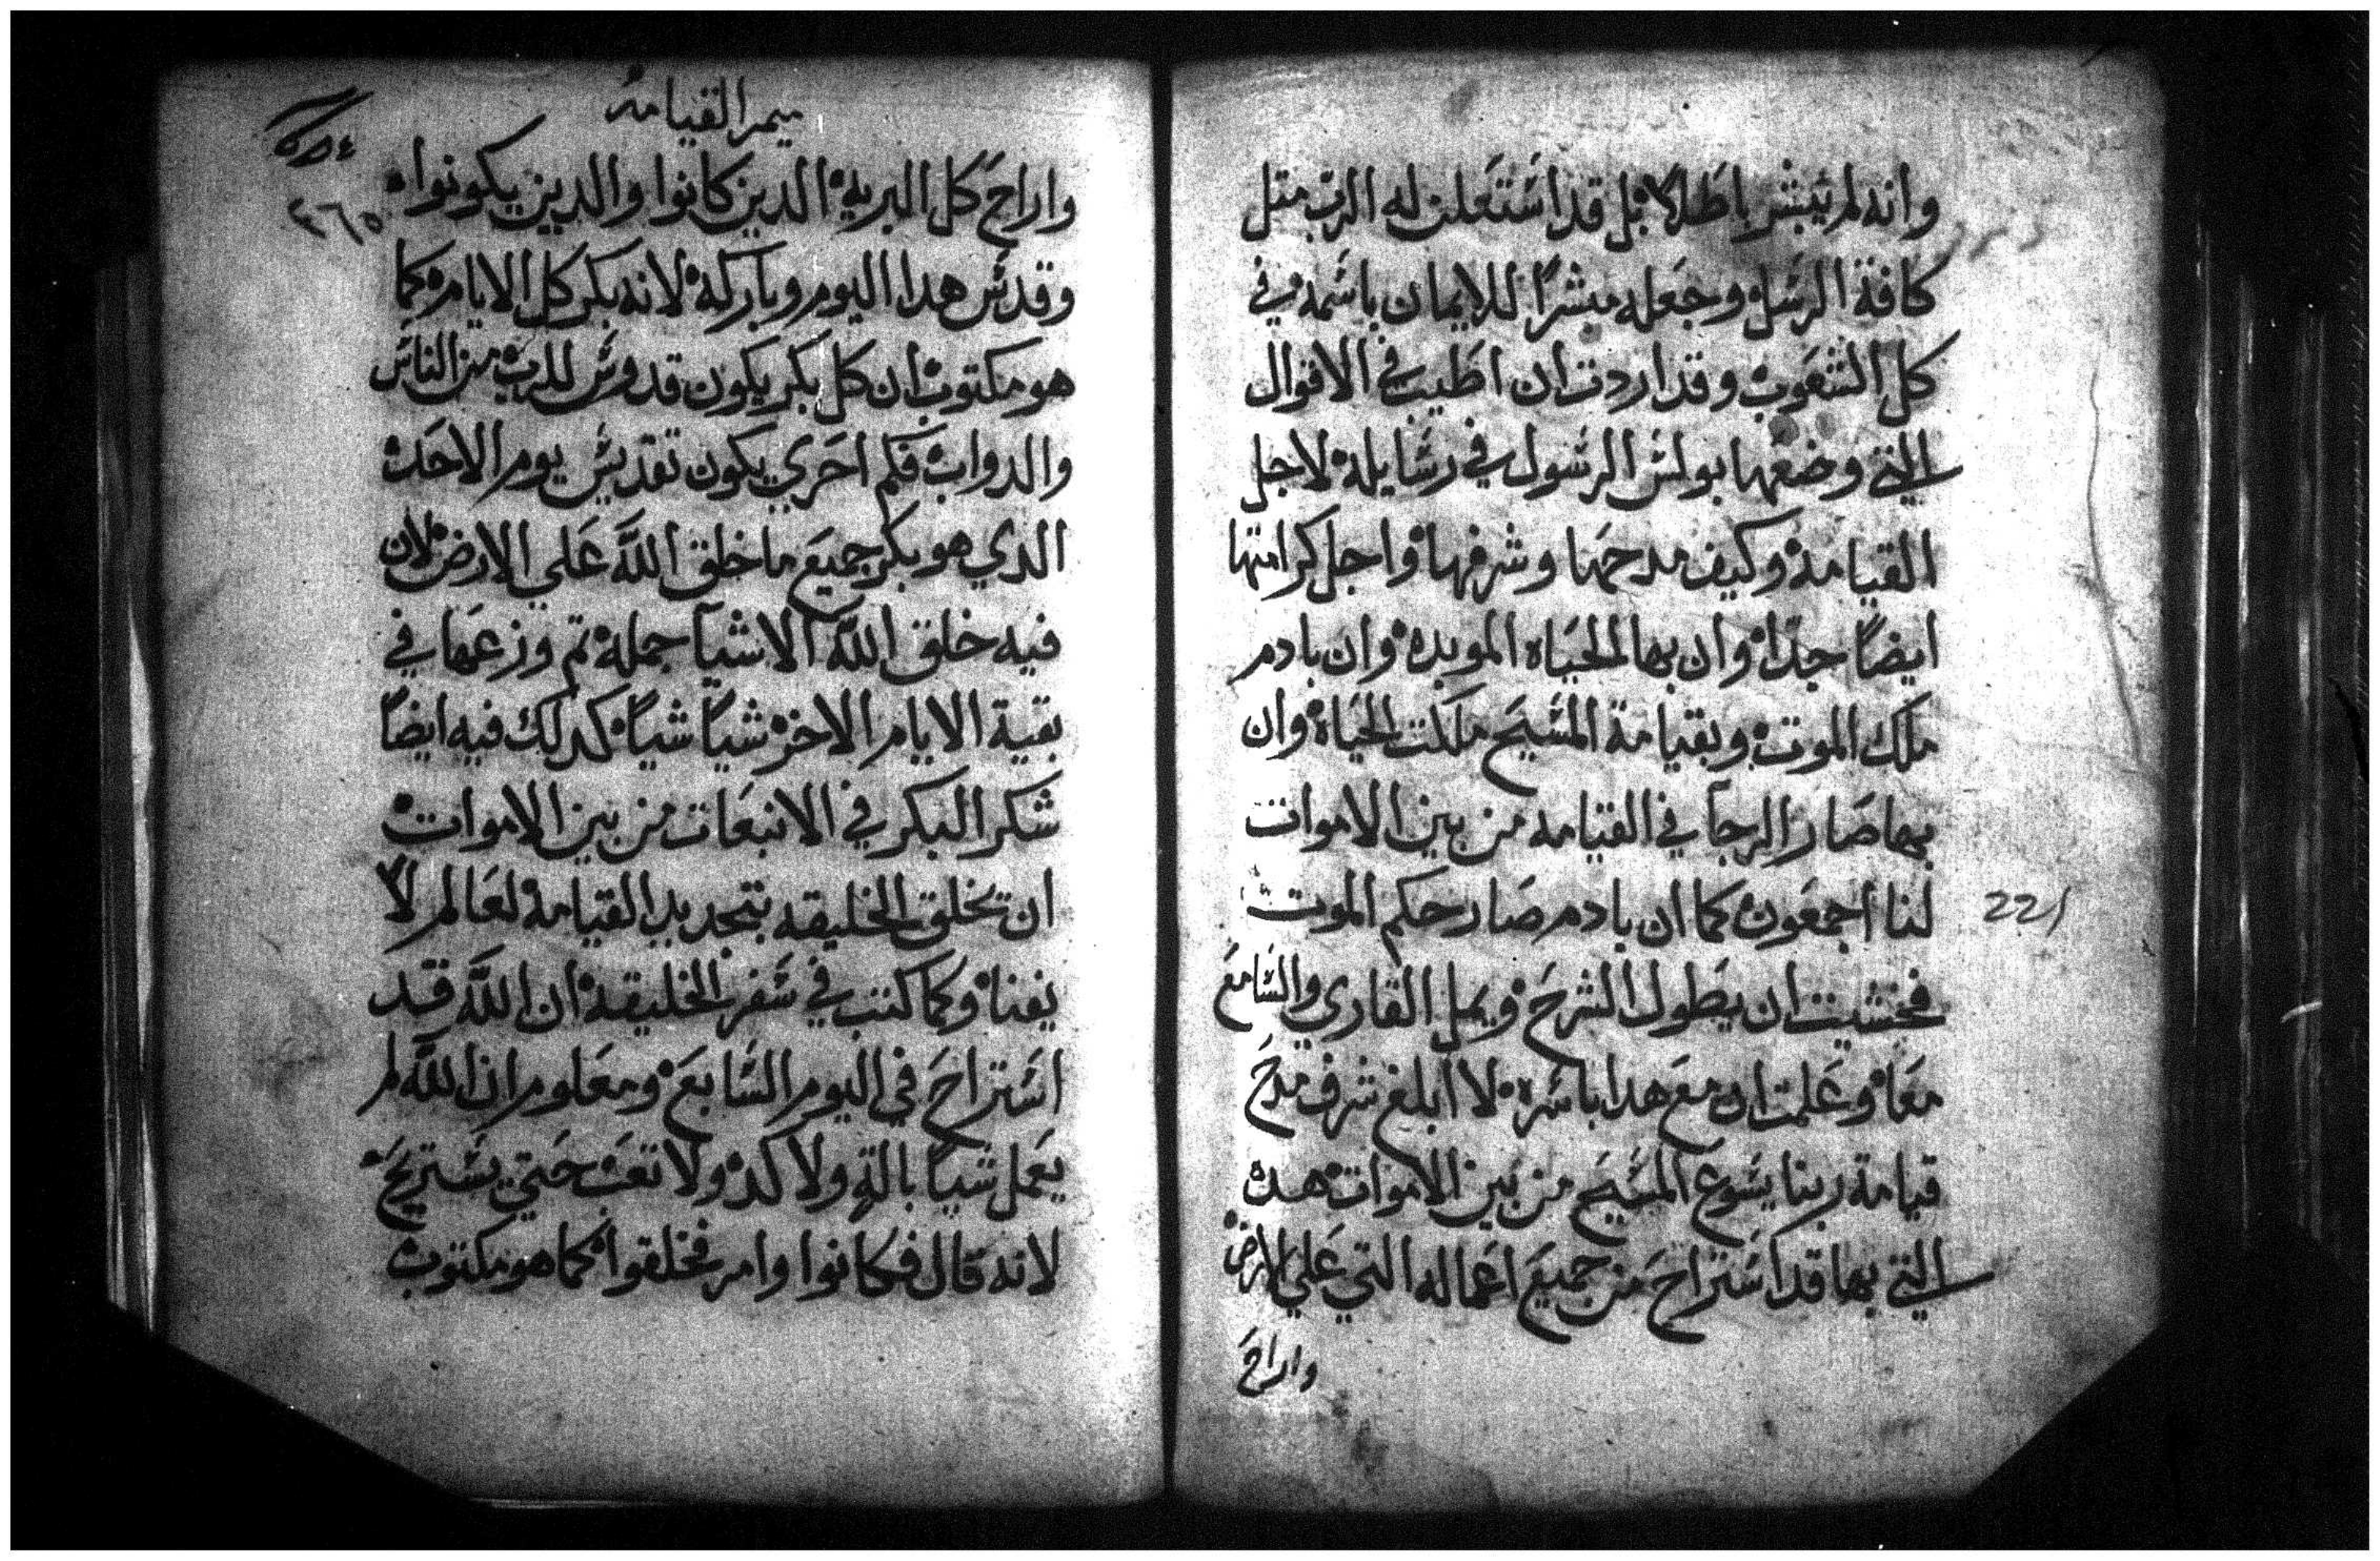 وانه لم يبشر باطلا بل قد استعلن له الرب متل
كافة الرسل وجعله مبشرًا للايمان باسمه في
كل الشعوب وقد اردت ان اطيب في الاقوال
التي وضعها بولس الرسول في رسايله لاجل
القيامة وكيف مدحها وشرفها واجل كرامتها
ايضًا جدًا وان بها الحياه الموبده وان بادم
ملك الموت وبقيامة المسيح ملكت الحياة وان
بها صار الرجا في القيامه من بين الاموات
لنا اجمعون كما ان بادم صار حكم الموت
221
فخشيت ان يطول الشرح ويمل القاري والسامع
معًا وعلمت ان مع هدا باسره لا ابلغ شرف مدح
قيامة ربنا يسوع المسيح من بين الاموات هده
التي بها قد استراح من جميع اعماله التي علي الارض
واراح
ميمر القيامه
٣٦٥
واراح كل البريه الدين كانوا والدين يكونوا
وقدس هدا اليوم وباركه لانه بكر كل الايام كما
هو مكتوب ان كل بكر يكون قدوس للرب من الناس
والدواب فكم احري يكون تقديس يوم الاحد
الدي هو بكر جميع ما خلق الله علي الارض لان
فيه خلق الله الاشيآ جملة تم وزعها في
بقية الايام الاخر شيًا شيًا كدلك فيه ايضًا
شكر البكر في الانبعات من بين الاموات
ان تخلق الخليقه بتجديد القيامة لعالم لا
يفنا وكما كتب في سفر الخليقة ان الله قد
استراح في اليوم السابع ومعلوم ان الله لم
يعمل شيًا بالةٍ ولا كد ولا تعب حتي يستريح
لانه قال فكانوا وامر فخلقوا كما هو مكتوب